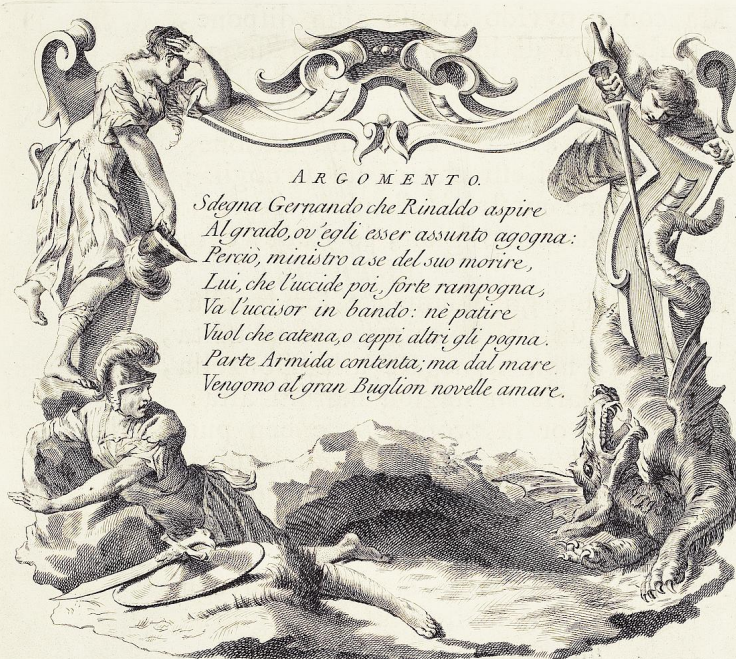 ARGOMENTO.
Sdegna Gernando che Rinaldo aspire
Al grado, ov'egli esser assunto agogna:
Perciò, ministro a se del suo morire,
Lui, che l'uccide poi, forte rampogna,
Va l'uccisor in bando: nè patire
Vuol che catena, o ceppi altri gli pogna.
Parte Armida contenta; ma dal mare
Vengono al gran Buglion novelle amare.